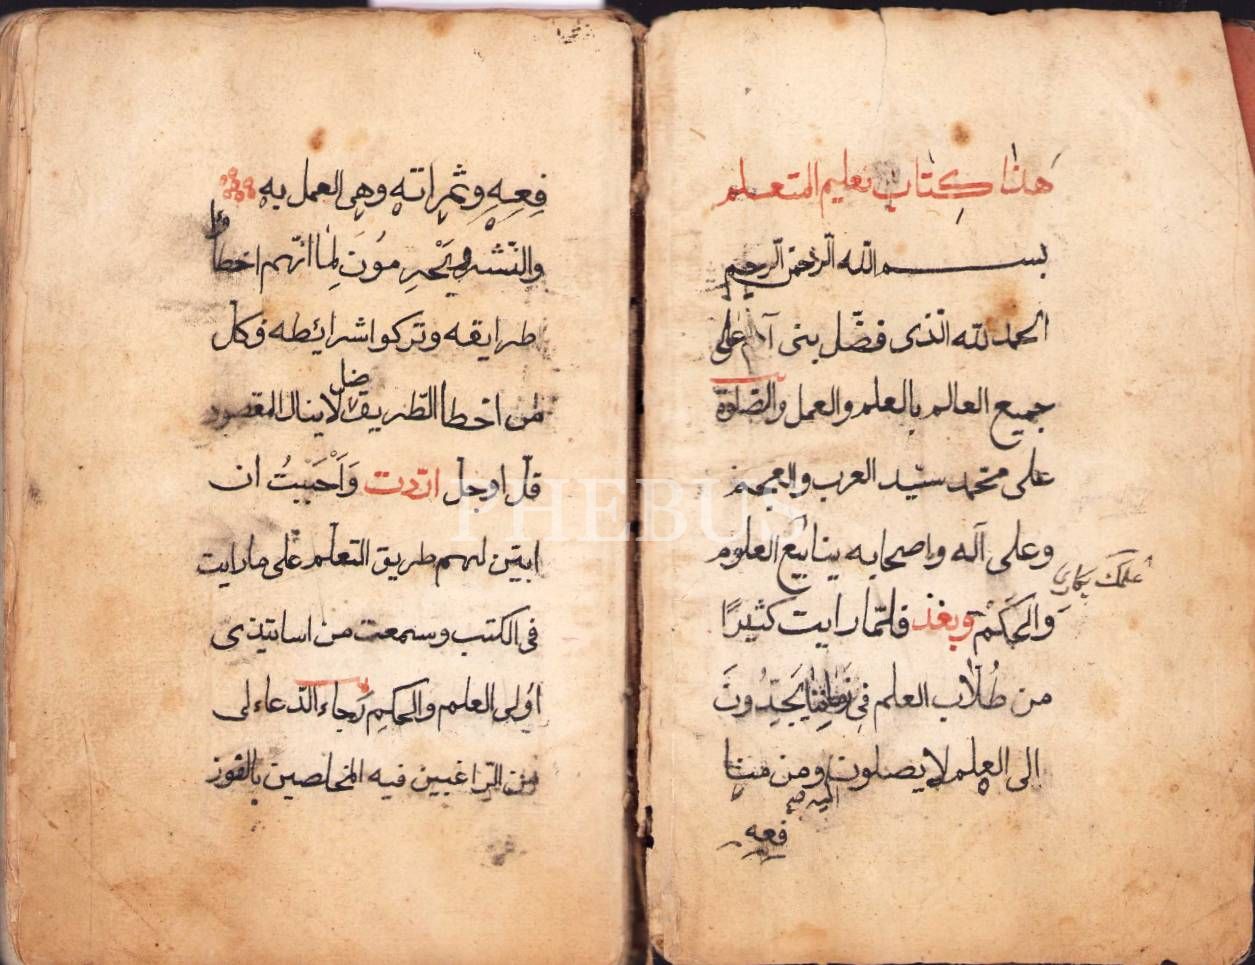 هذا كتاب تعليم المتعلم
بسم الله الرحمن الرحيم
الحمد لله الذى فضل بنى آدم على
جميع العالم بالعلم والعمل والصلوة
على محمد سيد العرب والعجم
وعلى آله واصحابه ينابيع العلوم
والحكم وبعد فلما رايت كثيرًا
من طُلّاب العلم فى زماننا يَجِدُّونَ
الى العلم لا يصلون ومن منا
اليه صح
فعه
فِعِهِ وثمراته وهى العمل به
والنشر يحرمون لما انهم اخطا
وا
طرايقه وتركوا شرائطه فكل
من اخطا الطريق لا ينال المقصود
ضل
قل او جل اردت وَاَحْبَبْتُ ان
ابين لهم طريق التعلم على ما رايت
فى الكتب وسمعت من اساتيذى
اولى العلم والحكم رجاء الدعاء لى
من الراغبين فيه المخلصين بالفوز
PHEBUS